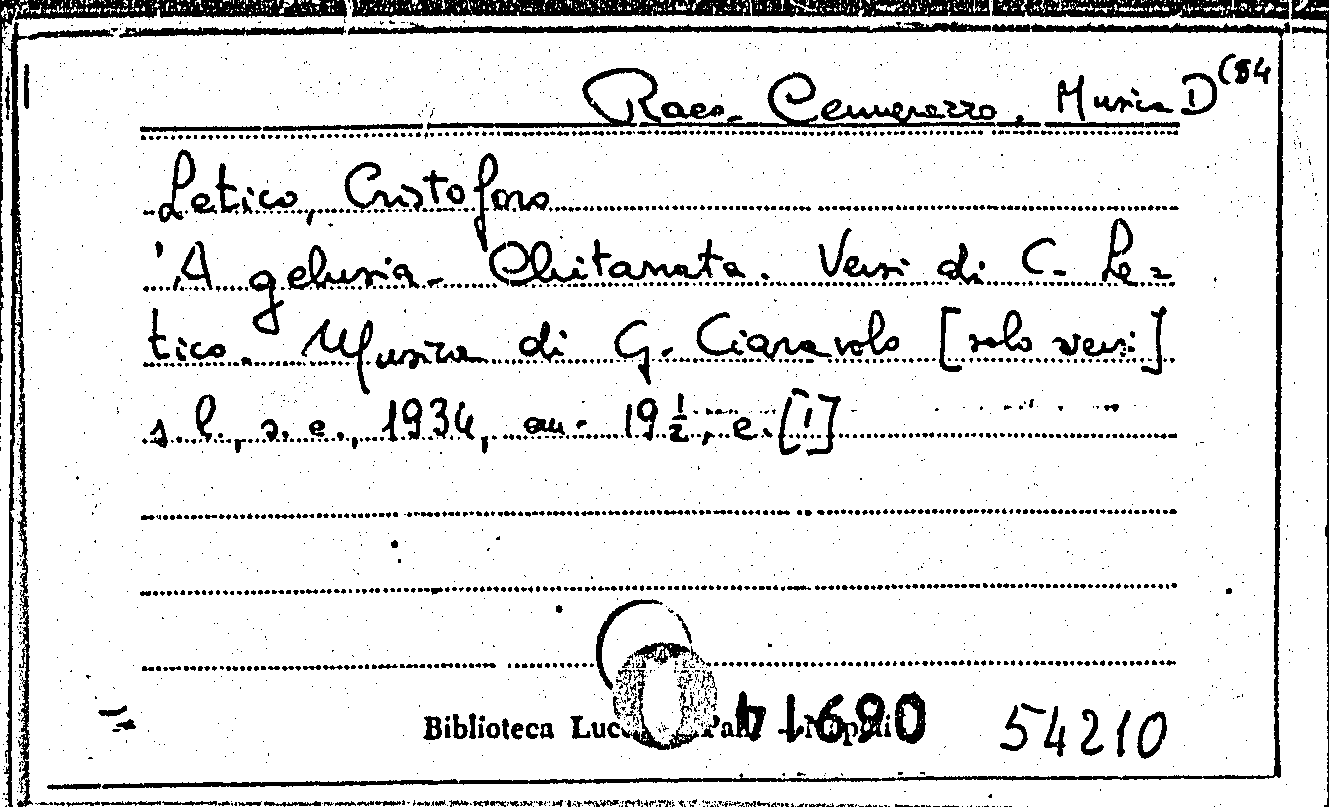 Racc. Cennerazzo. Musica D (84
Letico, Cristoforo
'A gelusia. Chitarrata. Versi di C. Le=
tico. Musica di G. Ciaravolo [solo versi]
s. l., s. e., 1934, cm. 19 ½, c. [1]
Biblioteca Napoli 54210